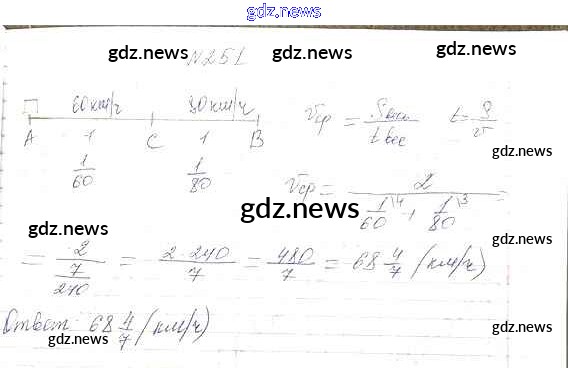 gdz.news
gdz.news gdz.news gdz.news
N 251
60 км/ч 80 км/ч
A 1 C 1 B
1/60 1/80
Vср = Sвсе / t все t = S/v
gdz.news
Vср = 2 / (1/60 \4 + 1/80 \3) =
gdz.news
gdz.news
= 2 / (7/240) = 2·240/7 = 480/7 = 68 4/7 (км/ч)
gdz.news
Ответ: 68 4/7 (км/ч)
gdz.news gdz.news